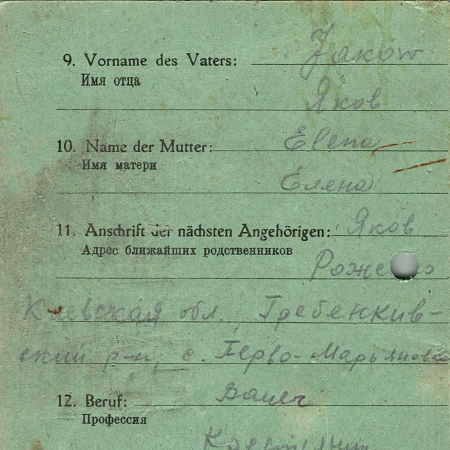 9. Vorname des Vaters: Jakow
Имя отца
Яков
10. Name der Mutter: Elena
Имя матери
Елена
11. Anschrift der nächsten Angehörigen: Яков
Адрес ближайших родственников
Киевская обл., Гребенкив-
ский р-н, с. Перво-Марьяновка
12. Beruf: Bauer
Профессия